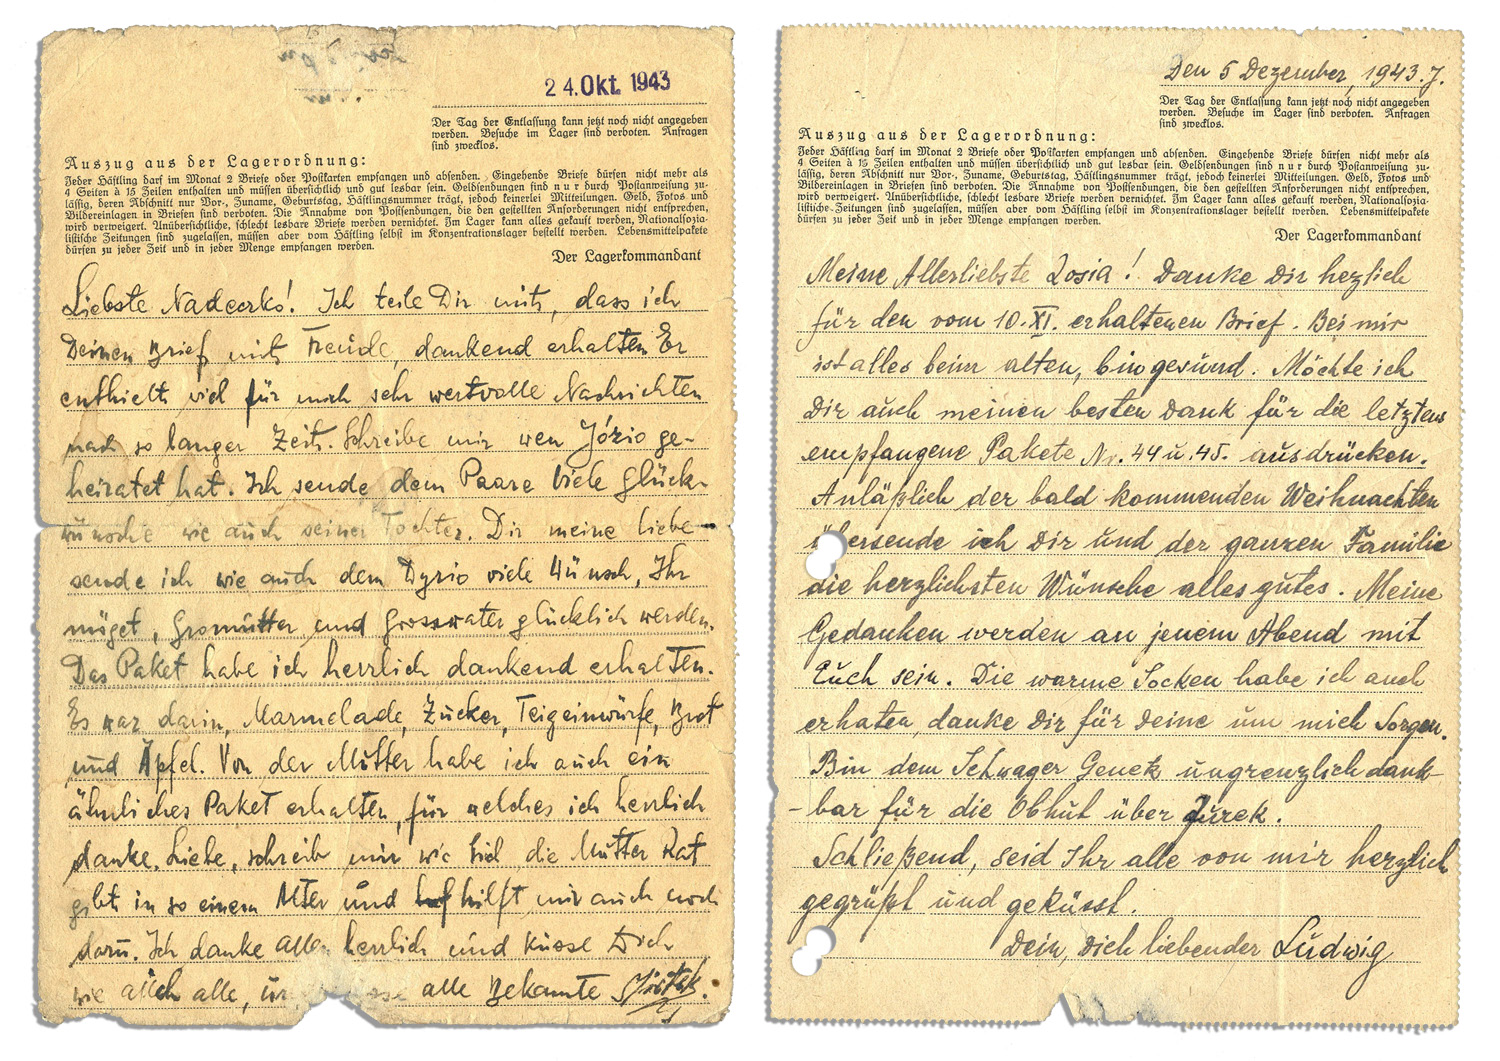 24. Okt. 1943
Der Tag der Entlassung kann jetzt noch nicht angegeben
werden. Besuche im Lager sind verboten. Anfragen
sind zwecklos.
Auszug aus der Lagerordnung:
Jeder Häftling darf im Monat 2 Briefe oder Postkarten empfangen und absenden. Eingehende Briefe dürfen nicht mehr als
4 Seiten à 15 Zeilen enthalten und müssen übersichtlich und gut lesbar sein. Geldsendungen sind nur durch Postanweisung zu-
lässig, deren Abschnitt nur Vor-, Zuname, Geburtstag, Häftlingsnummer trägt, jedoch keinerlei Mitteilungen. Geld, Fotos und
Bildereinlagen in Briefen sind verboten. Die Annahme von Postsendungen, die den gestellten Anforderungen nicht entsprechen,
wird verweigert. Unübersichtliche, schlecht lesbare Briefe werden vernichtet. Im Lager kann alles gekauft werden, Nationalsozia-
listische Zeitungen sind zugelassen, müssen aber vom Häftling selbst im Konzentrationslager bestellt werden. Lebensmittelpakete
dürfen zu jeder Zeit und in jeder Menge empfangen werden.
Der Lagerkommandant
Liebste Nadeerko! Ich teile Dir mit, dass ich
Deinen Brief mit Freude, dankend erhalten Er
enthielt viel für mich sehr wertvolle Nachrichten
nach so langer Zeit. Schreibe mir wen Józio ge-
heiratet hat. Ich sende dem Paare viele Glück-
wünsche wie auch seiner Tochter. Dir meine liebe
sende ich wie auch dem Dyzio viele Wünsch, Ihr
möget, Gromutter und Grosswater glücklich werden.
Das Paket habe ich herrlich dankend erhalten.
Es war darin, Marmelade, Zucker, Teigeinwürfe, Brot
und Äpfel. Von der Mutter habe ich auch ein
ähnliches Paket erhalten, für welches ich herrlich
danke. Liebe, schreib mir wie sich die Mutter Rat
gibt in so einem Alter und hilft mir auch noch
dazu. Ich danke allen herrlich und küsse Dich
wie auch alle, alle Bekannte
Den 5 Dezember, 1943. J.
Der Tag der Entlassung kann jetzt noch nicht angegeben
werden. Besuche im Lager sind verboten. Anfragen
sind zwecklos.
Auszug aus der Lagerordnung:
Jeder Häftling darf im Monat 2 Briefe oder Postkarten empfangen und absenden. Eingehende Briefe dürfen nicht mehr als
4 Seiten à 15 Zeilen enthalten und müssen übersichtlich und gut lesbar sein. Geldsendungen sind nur durch Postanweisung zu-
lässig, deren Abschnitt nur Vor-, Zuname, Geburtstag, Häftlingsnummer trägt, jedoch keinerlei Mitteilungen. Geld, Fotos und
Bildereinlagen in Briefen sind verboten. Die Annahme von Postsendungen, die den gestellten Anforderungen nicht entsprechen,
wird verweigert. Unübersichtliche, schlecht lesbare Briefe werden vernichtet. Im Lager kann alles gekauft werden, Nationalsozia-
listische-Zeitungen sind zugelassen, müssen aber vom Häftling selbst im Konzentrationslager bestellt werden. Lebensmittelpakete
dürfen zu jeder Zeit und in jeder Menge empfangen werden.
Der Lagerkommandant
Meine Allerliebste Zosia! Danke Dir hezlich
für den vom 10.XI. erhaltenen Brief. Bei mir
ist alles beim alten, bin gesund. Möchte ich
Dir auch meinen besten Dank für die letztens
empfangene Pakete Nr. 44 u. 45. ausdrücken.
Anläßlich der bald kommenden Weihnachten
übersende ich Dir und der ganzen Familie
die herzlichsten Wünsche alles gutes. Meine
Gedanken werden an jenem Abend mit
Euch sein. Die warme Socken habe ich auch
erhaten, danke Dir für Deine um mich Sorgen.
Bin dem Schwager Genek ungrenzlich dank-
-bar für die Obhut über Jurek.
Schließend, seid Ihr alle von mir herzlich
gegrüßt und geküsst.
Dein, Dich liebender Ludwig